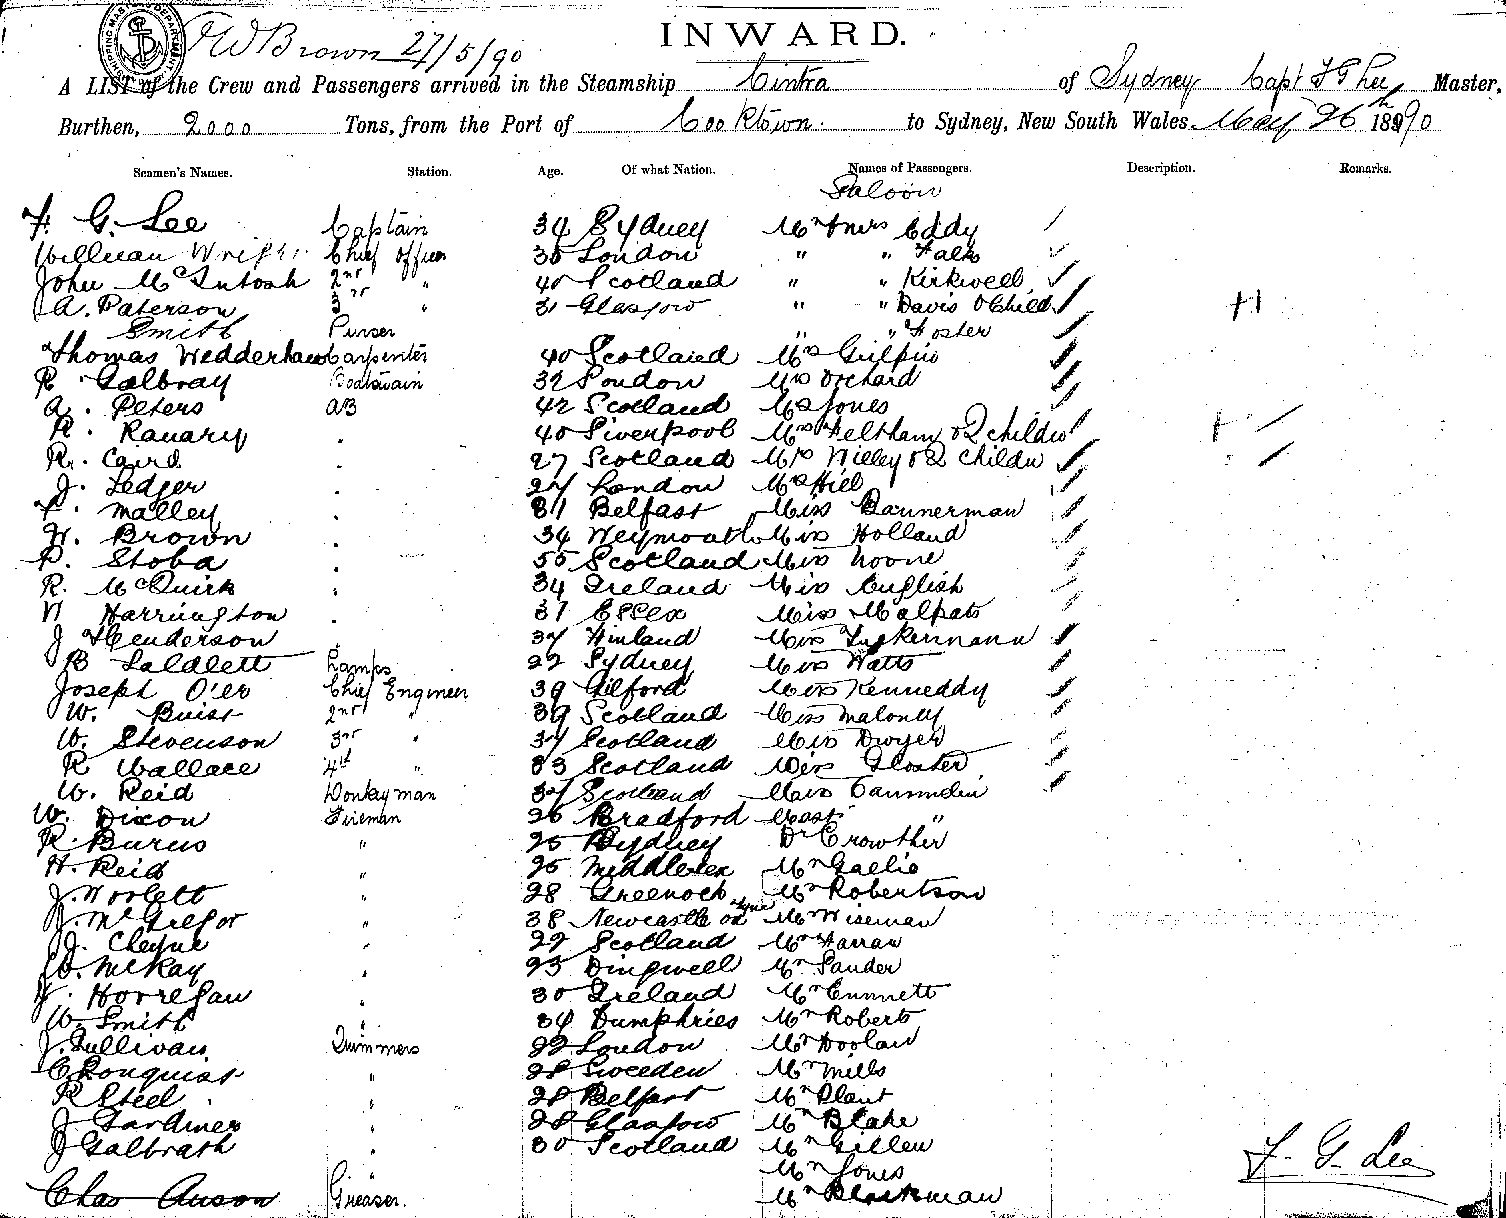 SHIPPING MASTER'S DEPARTMENT
HW Brown 27/5/90
INWARD.
A LIST of the Crew and Passengers arrived in the Steamship Cintra of Sydney Capt F G Lee Master,
Burthen, 2000 Tons, from the Port of Cooktown. to Sydney, New South Wales May 26th 1890
Seamen's Names. Station. Age. Of what Nation. Names of Passengers. Description. Remarks.
Saloon
F. G. Lee Captain 34 Sydney Mr & Mrs Eddy
William Wright Chief officer 30 London " " Falk
John McIntosh 2nd " 40 Scotland " " Kirkwell
A. Paterson 3rd " 31 Glasgow " " Davis & Child
Smith Purser " " Foster
Thomas Wedderhaus Carpenter 40 Scotland Mrs Gilpin
R. Galbray Boatswain 32 London Mrs Orchard
A. Peters AB 42 Scotland Mrs Jones
R. Ranary . 40 Liverpool Mrs Feltham & 2 childn
R. Caird . 27 Scotland Mrs Willey & 2 childn
J. Ledger . 27 London Mrs Hill
P. Malley . 31 Belfast Miss Bannerman
H. Brown . 34 Weymouth Miss Holland
P. Stoba . 55 Scotland Miss Noone
R. McQuirk . 34 Ireland Miss English
N Harrington . 37 Essex Miss Malpats
J Henderson 37 Finland Miss Tuckermann
B Saldlett Lamps 22 Sydney Miss Watts
Joseph O'er Chief Engineer 39 Gilford Miss Kenneddy
W. Buist 2nd " 39 Scotland Miss Maloney
W. Stevenson 3rd " 37 Scotland Miss Dwyer
R Wallace 4th " 33 Scotland Miss Gloster
W. Reid Donkeyman 37 Scotland Miss
W. Dixon Fireman 26 Bradford Mast "
R. Burns " 25 Sydney Dr Crowther
H. Reid " 25 Middlesex Mr Gaelic
J. Woolett " 28 Greenock Mr Robertson
J. McGregor " 38 Newcastle on Tyne Mr Wiseman
J. Cheyne " 22 Scotland Mr Farran
D. McKay " 23 Dingwell Mr Sauder
J. Horregan " 30 Ireland Mr Emmett
W. Smith " 34 Dumphries Mr Roberts
J. Sullivan Trimmers 22 London Mr Doolan
C Ronquist " 28 Sweeden Mr Mills
R Steel " 28 Belfast Mr Plant
J Gardiner " 28 Glasgow Mr Blake
J Galbrath " 30 Scotland Mr Gillen
" Mr Jones
Chas Anson Greaser. Mr Blackman
F. G. Lee